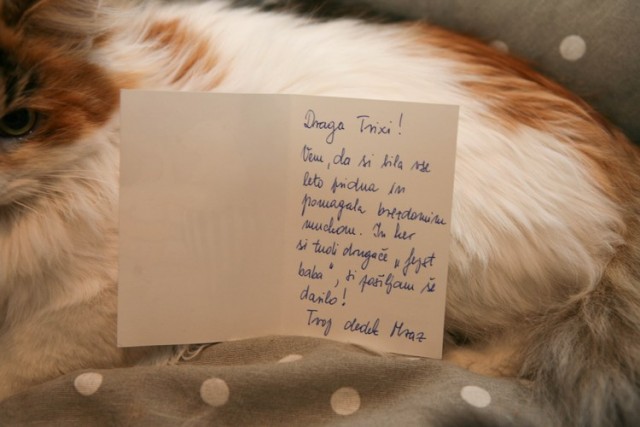 Draga Trixi!
Vem, da si bila vse
leto pridna in
pomagala brezdomnim
muckom. In ker
si tudi drugače „fejst
baba“, ti pošiljam še
darilo!
Tvoj dedek Mraz